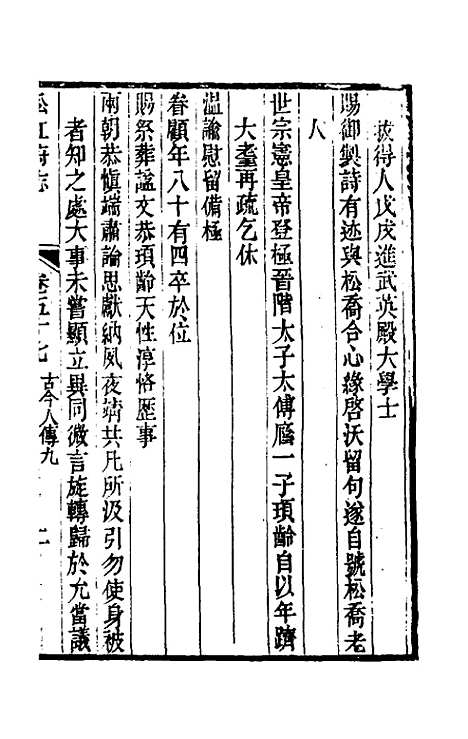 拔得人戊戌進武英殿大學士
賜御製詩有迹與松喬合心緣啓沃留句遂自號松喬老
人
世宗憲皇帝登極晉階太子太傅廕一子頊齡自以年躋
大耋再疏乞休
溫諭慰留備極
眷顧年八十有四卒於位
賜祭葬諡文恭頊齡天性淳恪歷事
兩朝恭愼端肅論思獻納夙夜靖共凡所汲引勿使身被
者知之處大事未嘗顯立異同微言旋轉歸於允當議
松江府志 卷五十七 古今人傳九 二